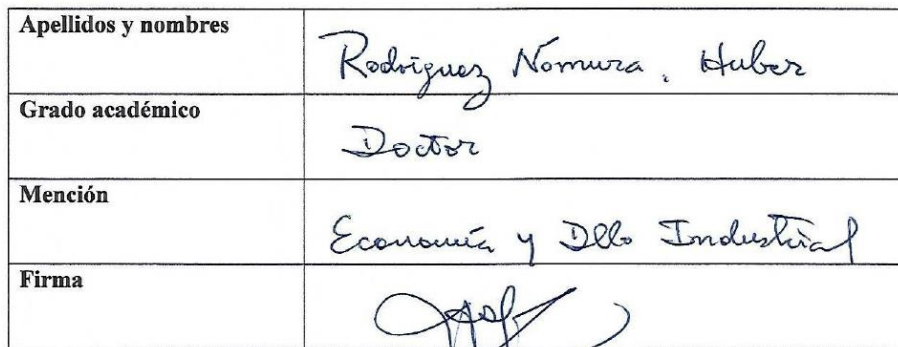 Apellidos y nombres
Rodriguez Nomura, Huber
Grado académico
Doctor
Mención
Economía y Dllo Industrial
Firma